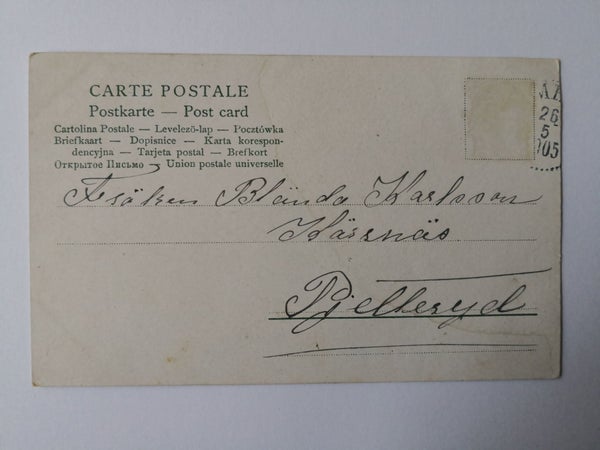 CARTE POSTALE
Postkarte — Post card
Cartolina Postale — Levelező-lap — Pocztówka
Briefkaart — Dopisnice — Karta korespon-
dencyjna — Tarjeta postal — Brefkort
Открытое Письмо — Union postale universelle
26
5
05
Fröken Blända Karlsson
Kärrnäs
Pjetteryd